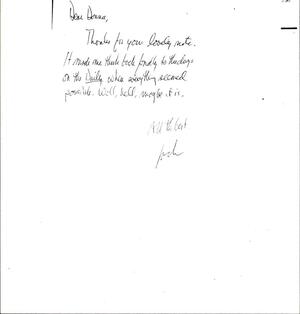 Dear Donna,
Thanks for your lovely note.
It made me think back fondly to the days
on the Daily when everything seemed
possible. Well, hell, maybe it is.
All the best